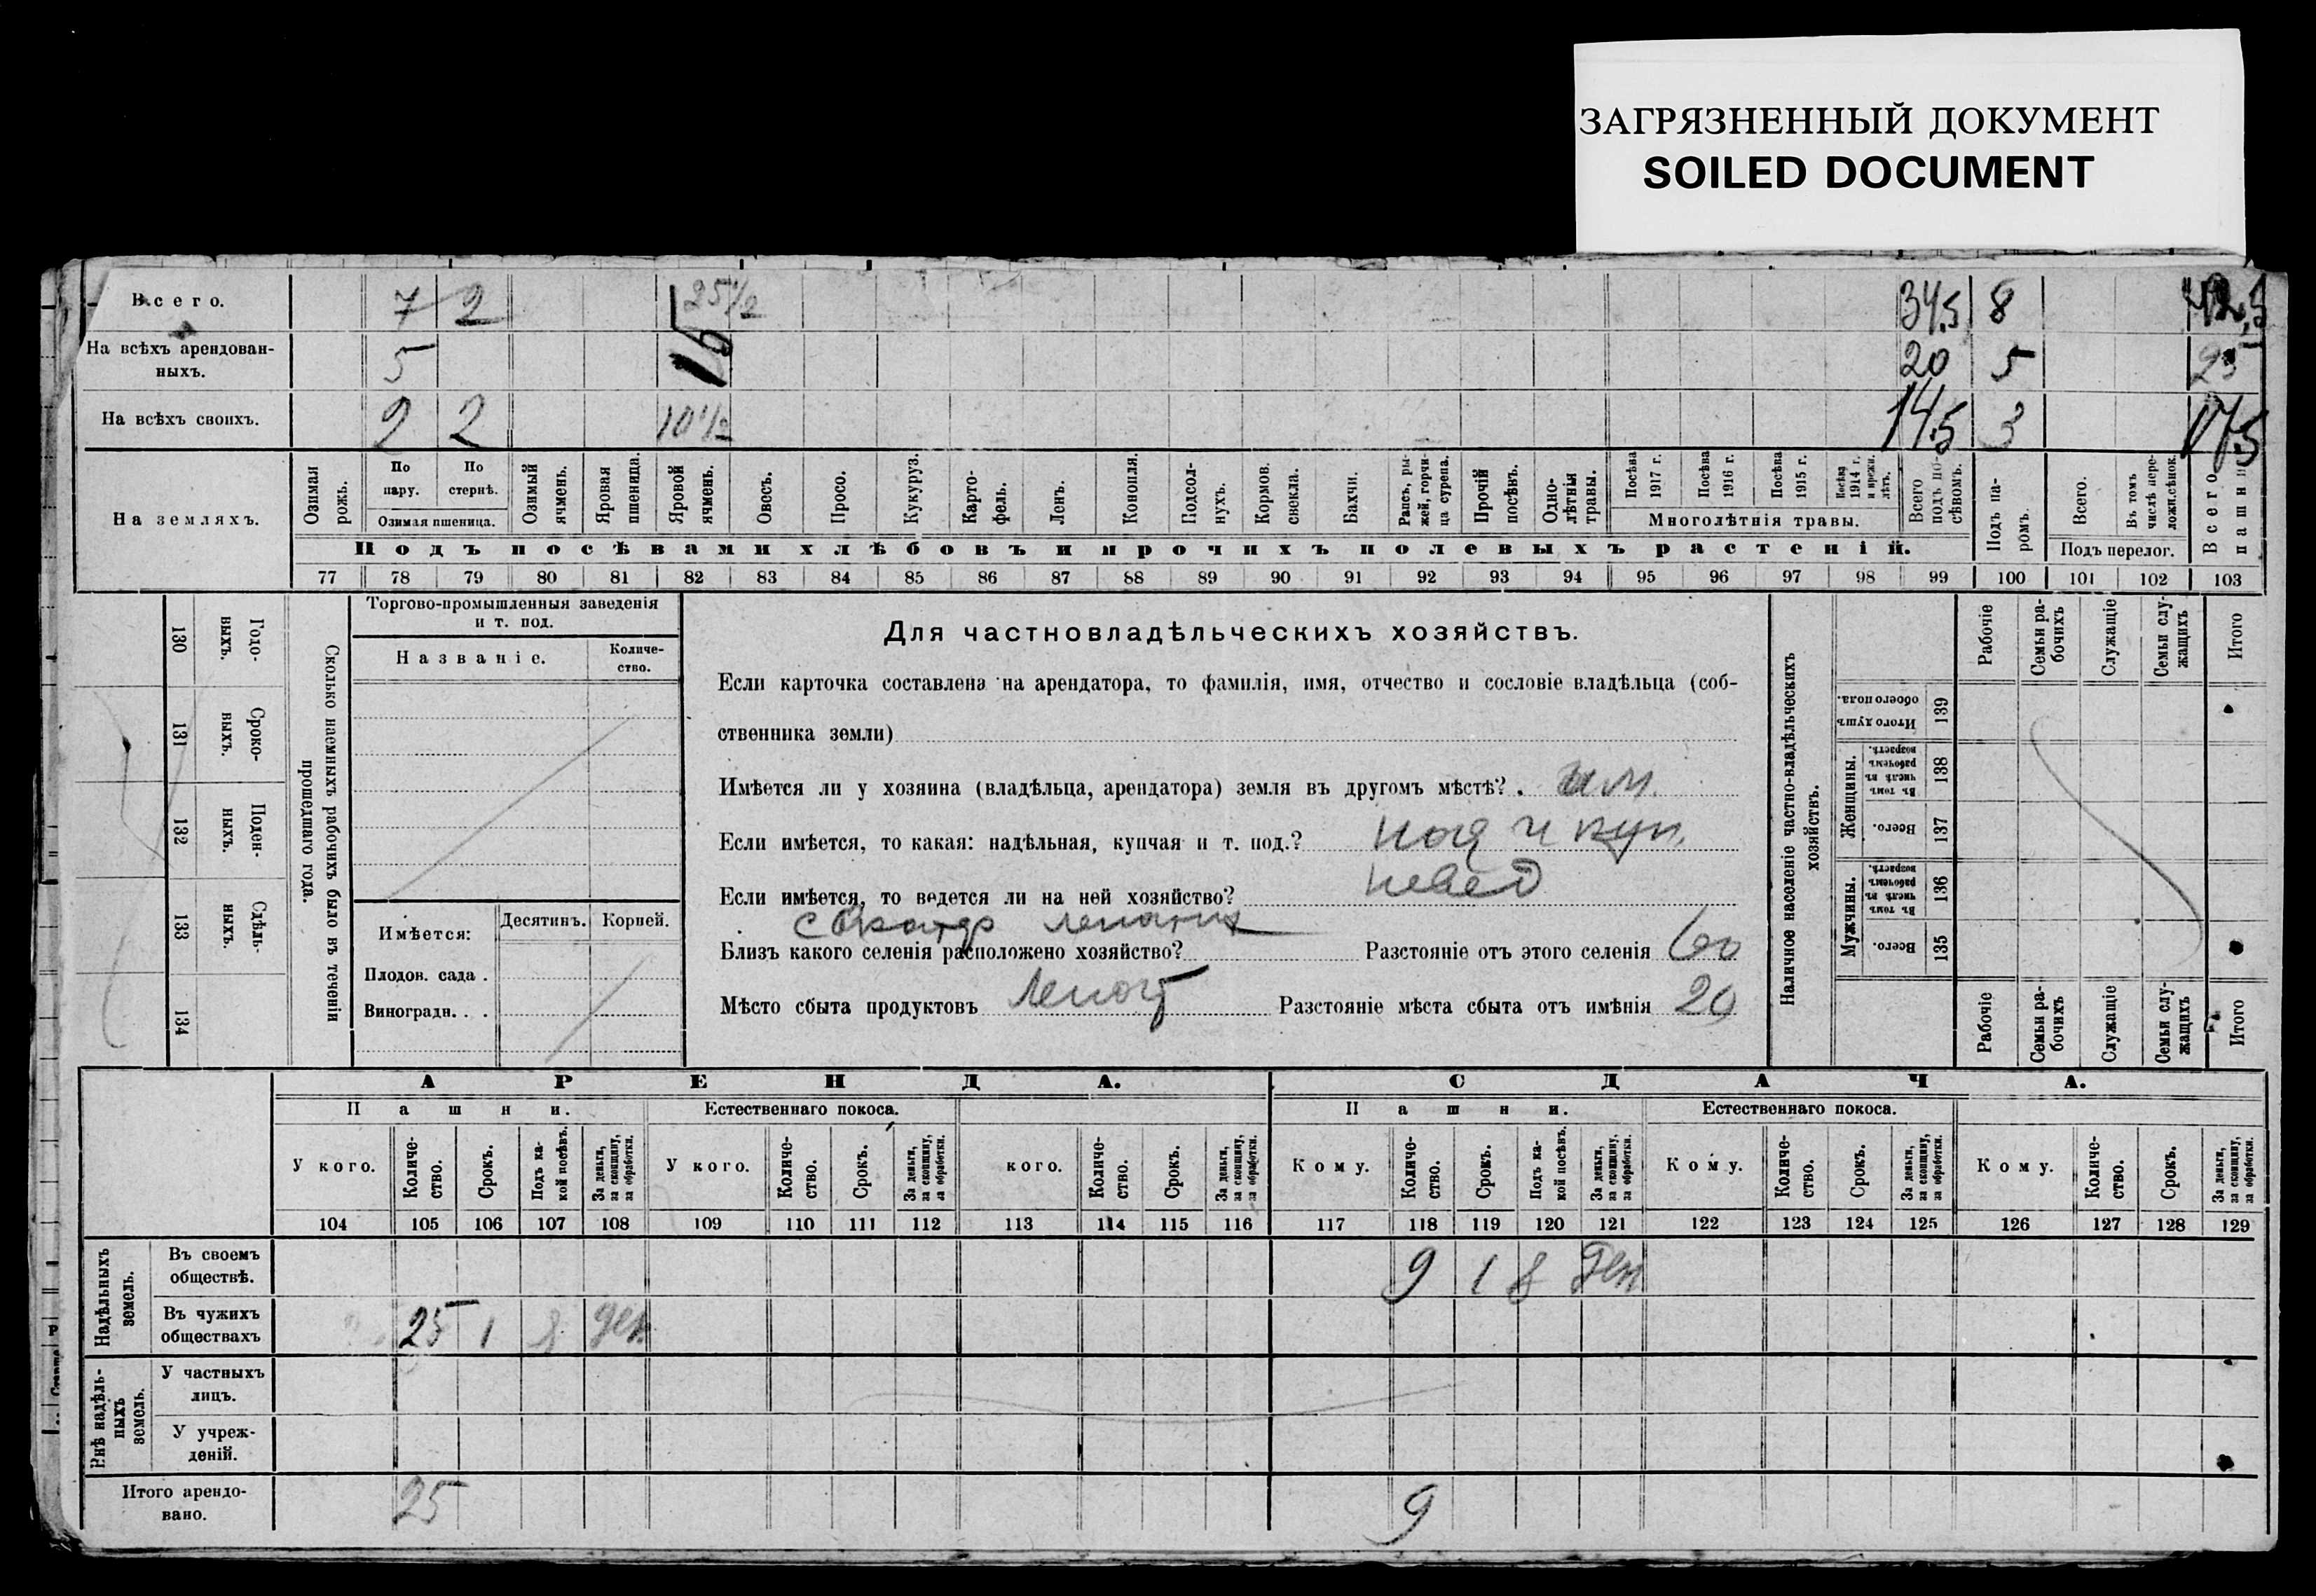 ЗАГРЯЗНЕННЫЙ ДОКУМЕНТ
SOILED DOCUMENT
Всего. 7 2 25½ 34,5 8 42,5
На всѣхъ арендован-
ныхъ. 5 15 20 5 25
На всѣхъ своихъ. 2 2 10½ 14,5 3 17,5
На земляхъ.
Озимая рожь.
По пару.
По стернѣ.
Озимая пшеница.
Озимый ячмень.
Яровая пшеница.
Яровой ячмень.
Овесъ.
Просо.
Кукуруз.
Карто-
фель.
Ленъ.
Конопля.
Подсол-
нухъ.
Кормов.
свекла.
Бахчи.
Рапсъ, ры-
жей, горчи-
ца сурепа.
Прочій
посѣвъ.
Одно-
лѣтнія
травы.
Посѣва
1917 г.
Посѣва
1916 г.
Посѣва
1915 г.
Посѣва
1914 г.
и прежн.
лѣтъ.
Многолѣтнія травы.
Всего
подъ по-
сѣвомъ.
Подъ па-
ромъ.
Всего.
Въ томъ
числѣ пере-
лож.сѣнок.
Подъ перелог.
Всего
пашни
Подъ посѣвами хлѣбовъ и прочихъ полевыхъ растеній.
77 78 79 80 81 82 83 84 85 86 87 88 89 90 91 92 93 94 95 96 97 98 99 100 101 102 103
130 131 132 133 134
Годо-
выхъ.
Сроко-
выхъ.
Поден-
ныхъ.
Сдѣль-
ныхъ.
Сколько наемныхъ рабочихъ было въ теченіи
прошедшаго года.
Торгово-промышленныя заведенія
и т. под.
Названіе.
Количе-
ство.
Имѣется: Десятинъ. Корней.
Плодов. сада .
Виноградн. . .
Для частновладѣльческихъ хозяйствъ.
Если карточка составлена на арендатора, то фамилія, имя, отчество и сословіе владѣльца (соб-
ственника земли)
Имѣется ли у хозяина (владѣльца, арендатора) земля въ другомъ мѣстѣ? . им.
Если имѣется, то какая: надѣльная, купчая и т. под.? над и куп.
Если имѣется, то ведется ли на ней хозяйство? невед
Близъ какого селенія расположено хозяйство? Разстояніе отъ этого селенія 60
Мѣсто сбыта продуктовъ Разстояніе мѣста сбыта отъ имѣнія 20
Наличное населеніе частно-владѣльческихъ
хозяйствъ.
Итого душъ
обоего пола.
139
Женщины.
Въ томъ
числѣ въ
рабочемъ
возрастѣ.
138
Всего.
137
Мужчины.
Въ томъ
числѣ въ
рабочемъ
возрастѣ.
136
Всего.
135
Рабочіе
Семьи ра-
бочихъ
Служащіе
Семьи слу-
жащихъ
Итого
Рабочіе
Семьи ра-
бочихъ
Служащіе
Семьи слу-
жащихъ
Итого
АРЕНДА. СДАЧА.
Пашни. Естественнаго покоса. Пашни. Естественнаго покоса.
У кого.
Количе-
ство.
Срокъ.
Подъ ка-
кой посѣвъ.
За деньги,
за скопщину,
за обработки.
У кого.
Количе-
ство.
Срокъ.
За деньги,
за скопщину,
за обработки.
кого.
Количе-
ство.
Срокъ.
За деньги,
за скопщину,
за обработки.
Кому.
Количе-
ство.
Срокъ.
Подъ ка-
кой посѣвъ.
За деньги,
за скопщину,
за обработки.
Кому.
Количе-
ство.
Срокъ.
За деньги,
за скопщину,
за обработки.
Кому.
Количе-
ство.
Срокъ.
За деньги,
за скопщину,
за обработки.
104 105 106 107 108 109 110 111 112 113 114 115 116 117 118 119 120 121 122 123 124 125 126 127 128 129
Надѣльныхъ
земель.
Въ своемъ
обществѣ. 9 1 ден
Въ чужихъ
обществахъ 25 1 ден.
Внѣ надѣль-
ныхъ
земель.
У частныхъ
лицъ.
У учреж-
деній.
Итого арендо-
вано. 25 9